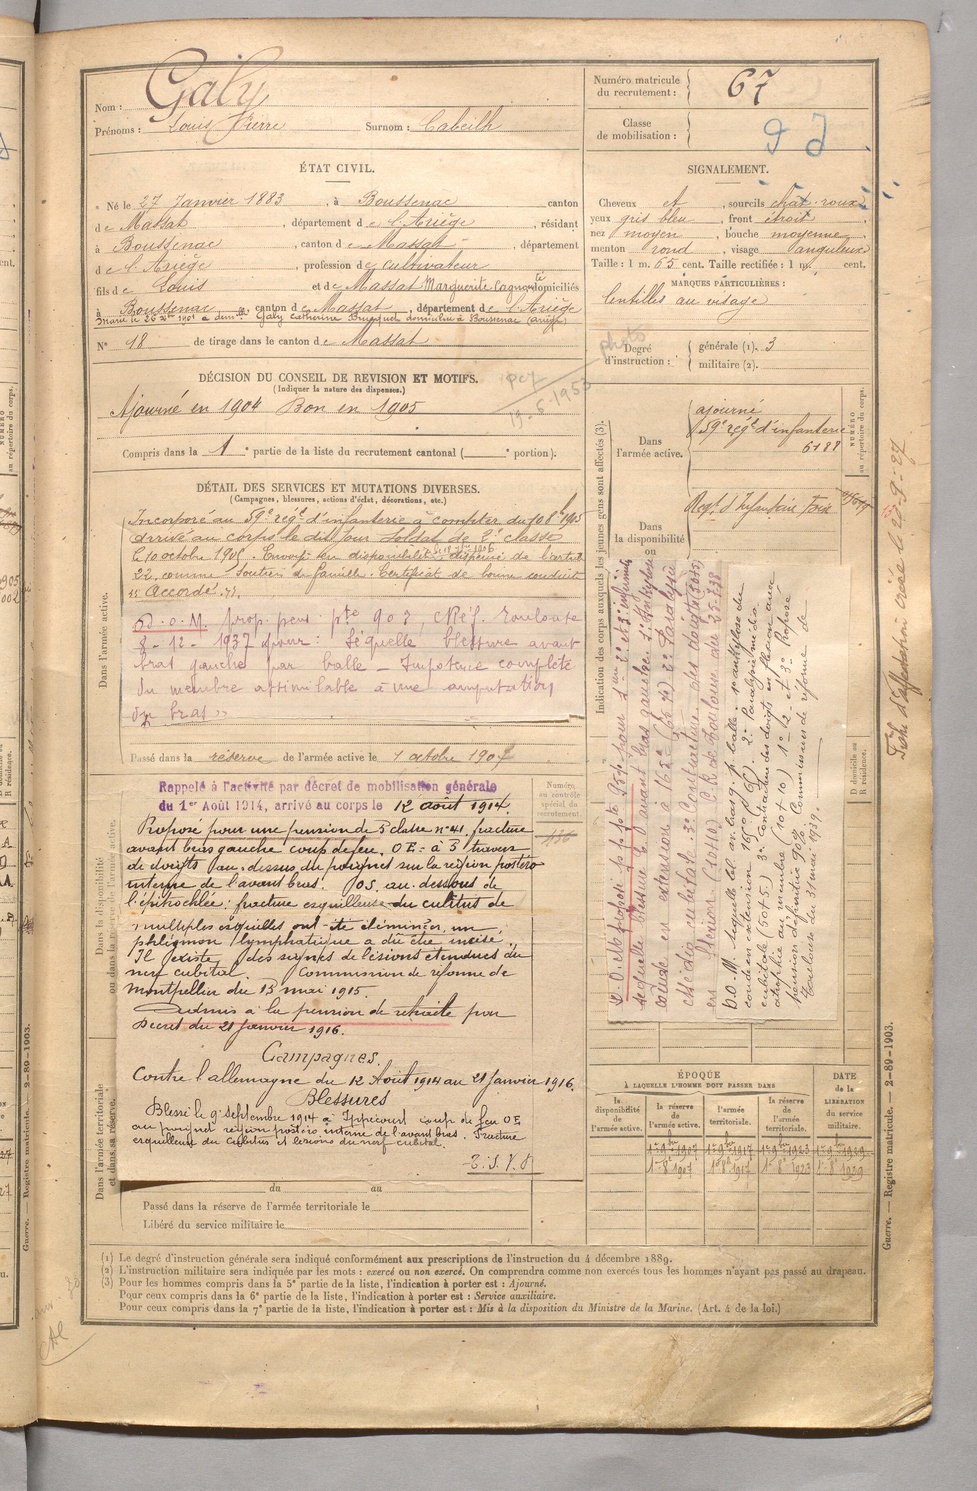 Nom : Galy
Prénoms : Louis Pierre Surnom : Cabeilh
Numéro matricule du recrutement : 67
Classe de mobilisation :
ÉTAT CIVIL.
Né le 27 Janvier 1883, à Boussenac canton
de Massat, département de l'Ariège, résidant
à Boussenac, canton de Massat, département
de l'Ariège, profession de cultivateur
fils de Louis et de Massat Marguerite Cagno domiciliés
à Boussenac, canton de Massat, département de l'Ariège
Galy Catherine domicilié à Boussenac (Ariège)
N° 18 de tirage dans le canton de Massat
SIGNALEMENT.
Cheveux et, sourcils chât. roux
yeux gris bleu, front étroit
nez moyen, bouche moyenne
menton rond, visage anguleux
Taille : 1 m. 65 cent. Taille rectifiée : 1 m. cent.
MARQUES PARTICULIÈRES :
lentilles au visage
Degré d'instruction : générale (1). 3
militaire (2).
DÉCISION DU CONSEIL DE REVISION ET MOTIFS.
(Indiquer la nature des dispenses.)
Ajourné en 1904 Bon en 1905
19-6-1953
Compris dans la 1e partie de la liste du recrutement cantonal ( e portion).
DÉTAIL DES SERVICES ET MUTATIONS DIVERSES.
(Campagnes, blessures, actions d'éclat, décorations, etc.)
Dans l'armée active.
Incorporé au 59e régt d'infanterie à compter du 8 1905
arrivé au corps le dit jour Soldat de 2e classe
le 10 octobre 1905. Envoyé en disponibilité dispensé de l'article
22, comme Soutien de famille. Certificat de bonne conduite
Accordé.
D.O.M. Prop. pens. pte 90%, C Réf. Toulouse
8-12-1937 pour : Séquelle blessure avant
bras gauche par balle - Impotence complète
du membre assimilable à une amputation
du bras
Passé dans la réserve de l'armée active le 1 octobre 1907
Dans la disponibilité ou dans la réserve de l'armée active.
Rappelé à l'activité par décret de mobilisation générale
du 1er Août 1914, arrivé au corps le 12 août 1914.
Numéro au contrôle spécial du recrutement.
Proposé pour une pension de 5e classe n° 41, fracture
avant bras gauche coup de feu. OE = à 3 travers
de doigts au dessus du poignet sur la région postéro
interne de l'avant bras. OS. au dessous de
l'épitrochlée : fracture esquilleuse du cubitus de
multiples esquilles ont été éliminées, un
phlegmon lymphatique a dû être incisé.
Il existe des signes de lésions étendues du
nerf cubital. Commission de réforme de
Montpellier du 13 mai 1915.
Admis à la pension de retraite par
Décret du 21 Janvier 1916.
Campagnes.
Contre l'allemagne du 12 Août 1914 au 21 Janvier 1916.
Blessures
Blessé le 9 septembre 1914 à Ippécourt coup de feu OE
au poignet région postéro interne de l'avant bras. Fracture
esquilleuse du Cubitus et lésions du nerf cubital.
Dans l'armée territoriale et dans sa réserve.
du au
Passé dans la réserve de l'armée territoriale le
Libéré du service militaire le
Indication des corps auxquels les jeunes gens sont affectés (3).
Dans l'armée active.
ajourné
59e régt d'infanterie
NUMÉRO au répertoire du corps.
Dans la disponibilité ou
Regt d'Infanterie Foix
séquelle blessure avant bras gauche. 1° Ankylose
coude en extension 2° Paralysie
D.O.M. Séquelle bl. av. bras g. p. balle. 1° ankylose du
coude en extension 2° Paralysie médio
cubitale (50+5) 3° Contracture des doigts en flexion avec
atrophie au membre (10+10) 1° 2° et 3° Proposé
pension définitive 90% Commission de réforme de
Toulouse du 31 mai 1939.
D domicile ou R résidence.
Fiche d'affectation créée le
ÉPOQUE
À LAQUELLE L'HOMME DOIT PASSER DANS
DATE de la LIBÉRATION du service militaire.
la disponibilité de l'armée active.
la réserve de l'armée active.
l'armée territoriale.
la réserve de l'armée territoriale.
1907 1917 1923 1929
1907 1917 1923 1929
Guerre. — Registre matricule. — 2-89-1903.
(1) Le degré d'instruction générale sera indiqué conformément aux prescriptions de l'instruction du 4 décembre 1889.
(2) L'instruction militaire sera indiquée par les mots : exercé ou non exercé. On comprendra comme non exercés tous les hommes n'ayant pas passé au drapeau.
(3) Pour les hommes compris dans la 5e partie de la liste, l'indication à porter est : Ajourné.
Pour ceux compris dans la 6e partie de la liste, l'indication à porter est : Service auxiliaire.
Pour ceux compris dans la 7e partie de la liste, l'indication à porter est : Mis à la disposition du Ministre de la Marine. (Art. 4 de la loi.)